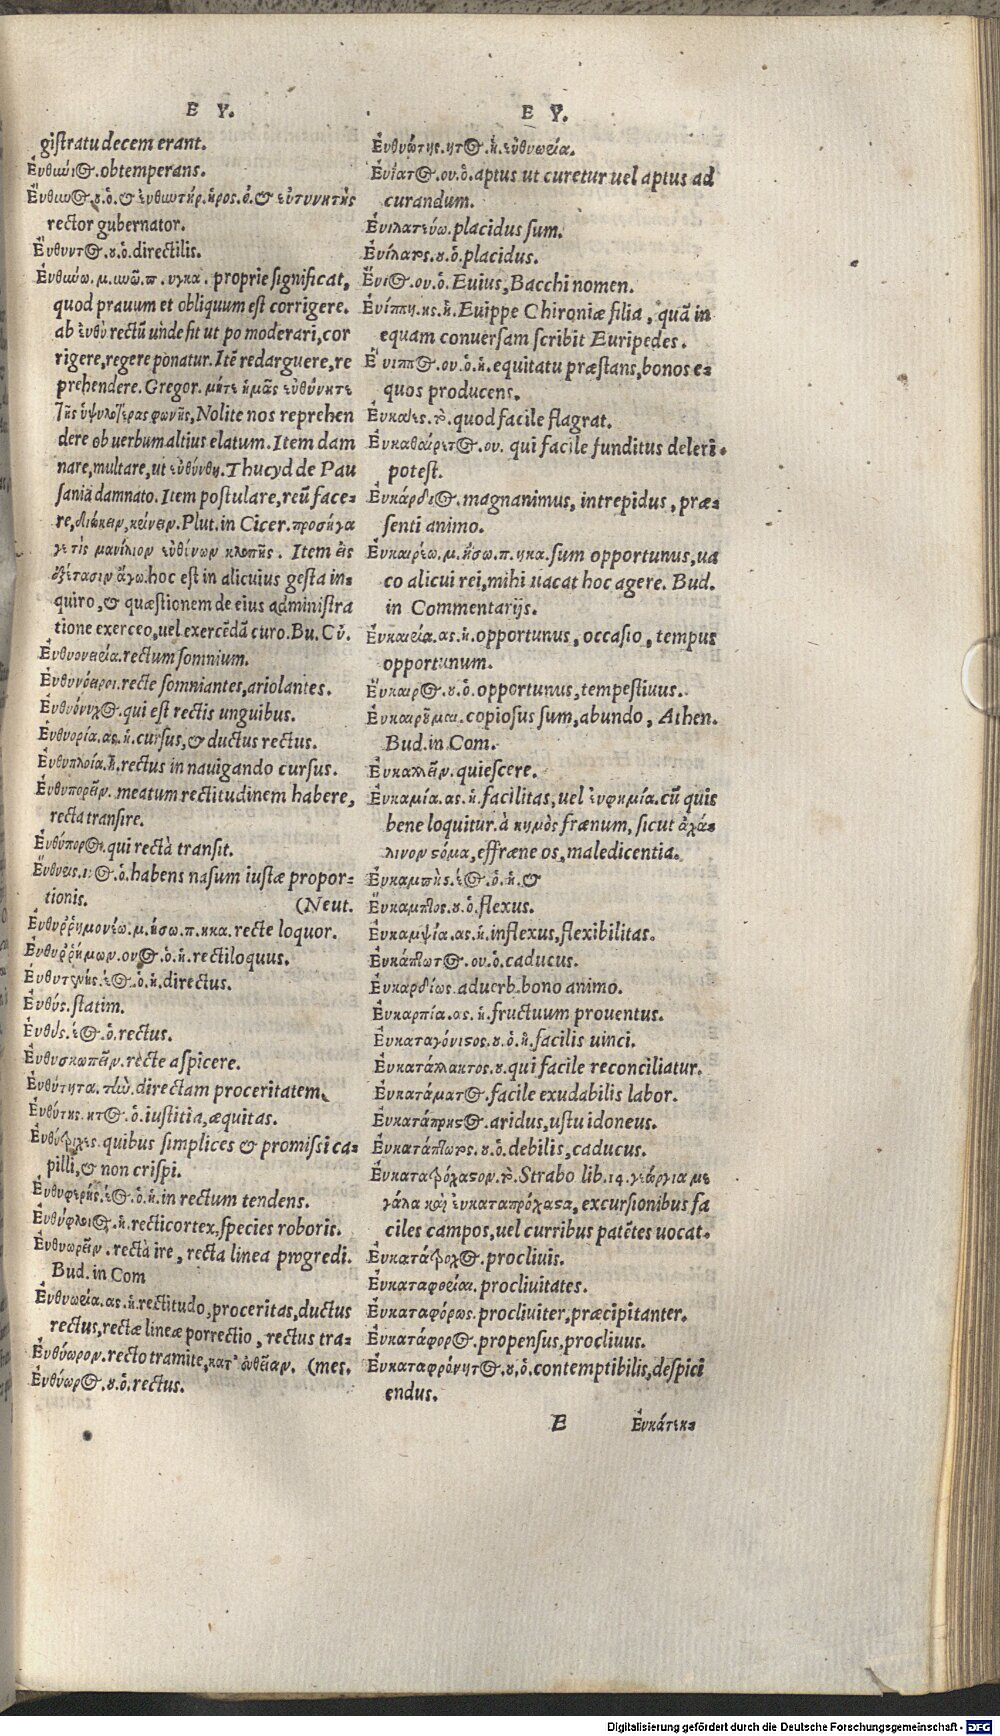 E Y.
gistratu decem erant.
Ἐυθωύι⊙. obtemperans.
Ἐυθων⊙.ȣ.ὁ.& ἐυθωτήρ.ῆρος.ὁ.& ἐυτυνητὴς
rector gubernator.
Ἔυθυντ⊙.ȣ.ὁ.directilis.
Ἐυθωύω.μ.ωῶ.π.υγκα. proprie significat,
quod prauum et obliquum est corrigere.
ab ἐυθὺ rectũ unde fit ut po moderari, cor
rigere, regere ponatur. Itẽ redarguere, re
prehendere. Gregor. μήτε ἡμᾶς ἐυθύνητε
τῆς ὑψηλοτέρας φωνῆς, Nolite nos reprehen
dere ob uerbum altius elatum. Item dam
nare, multare, ut ἐυθύνθη. Thucyd de Pau
sania damnato. Item postulare, reũ face-
re, διώκειν, κρίνειν. Plut. in Cicer. προσήγα
γε τὶς μανίλιον ἐυθύνων κλοπῆς. Item εἰς
ἐξέτασιν ἄγω. hoc est in alicuius gesta in-
quiro, & quæstionem de eius administra
tione exerceo, uel exercẽdã curo. Bu. Cỹ.
Ἐυθυονειρία. rectum somnium.
Ἐυθυνόειροι. recte somniantes, ariolantes.
Ἐυθυόνυχ⊙. qui est rectis unguibus.
Ἐυθυορία.ας.ἡ. cursus, & ductus rectus.
Ἐυθυπλοία.ἡ. rectus in nauigando cursus.
Ἐυθυπορεῖν. meatum rectitudinem habere,
recta transire.
Ἐυθύπορ⊙. qui rectà transit.
Ἔυθυρις.ι⊙.ὁ. habens nasum iustæ propor-
tionis. (Neut.
Ἐυθυῤῥημονέω.μ.ήσω.π.ηκα. recte loquor.
Ἐυθυῤῥήμων.ον⊙.ὁ.ἡ. rectiloquus.
Ἐυθυτενής.έ⊙.ὁ.ἡ. directus.
Ἐυθύς. statim.
Ἐυθύς.έ⊙.ὁ. rectus.
Ἐυθυσκωπεῖν. recte aspicere.
Ἐυθύτητα. τὼ. directam proceritatem.
Ἐυθύτης.ητ⊙.ὁ. iustitia, æquitas.
Ἐυθύτριχες. quibus simplices & promissi ca-
pilli, & non crispi.
Ἐυθυφερής.έ⊙.ὁ.ἡ. in rectum tendens.
Ἐυθύφλοι⊙.ἡ. recticortex, species roboris.
Ἐυθυωρεῖν. rectà ire, recta linea progredi.
Bud. in Com
Ἐυθυωρία.ας.ἡ. rectitudo, proceritas, ductus
rectus, rectæ lineæ porrectio, rectus tra-
Ἐυθύωρον. recto tramite, κατ' ἐυθεῖαν. (mes.
Ἐυθύωρ⊙.ȣ.ὁ. rectus.
E Y.
Ἐυθυώτης.ητ⊙.ἡ. ἐυθυωρία.
Ἐυΐατ⊙.ου.ὁ. aptus ut curetur uel aptus ad
curandum.
Ἐυιλατεύω. placidus sum.
Ἐυίλατος.ȣ.ὁ. placidus.
Ἔυι⊙.ου.ὁ. Euius, Bacchi nomen.
Ἐυίππη.ης.ἡ. Euippe Chironiæ filia, quã in
equam conuersam scribit Euripedes.
Ἔυιππ⊙.ου.ὁ.ἡ. equitatu præstans, bonos e-
quos producens.
Ἐυκαές. τὸ. quod facile flagrat.
Ἐυκαθαίρετ⊙.ου. qui facile funditus deleri
potest.
Ἐυκάρδι⊙. magnanimus, intrepidus, præ-
senti animo.
Ἐυκαιρέω.μ.ήσω.π.ηκα. sum opportunus, ua
co alicui rei, mihi uacat hoc agere. Bud.
in Commentarijs.
Ἐυκαιρία.ας.ἡ. opportunus, occasio, tempus
opportunum.
Ἔυκαιρ⊙.ȣ.ὁ. opportunus, tempestiuus.
Ἐυκαιρȣ̃μαι. copiosus sum, abundo, Athen.
Bud. in Com.
Ἐυκαλλεῖν. quiescere.
Ἐυκαμία.ας.ἡ. facilitas, uel ἐυφημία. cũ quis
bene loquitur. à κημὸς frænum, sicut ἀχά-
λινον στόμα, effræne os, maledicentia.
Ἐυκαμπὴς.έ⊙.ὁ.ἡ.&
Ἔυκαμπτος.ȣ.ὁ. flexus.
Ἐυκαμψία.ας.ἡ. inflexus, flexibilitas.
Ἐυκάπτωτ⊙.ου.ὁ. caducus.
Ἐυκαρδίως. aduerb. bono animo.
Ἐυκαρπία.ας.ἡ. fructuum prouentus.
Ἐυκαταγόνιστος.ȣ.ὁ.ἡ. facilis uinci.
Ἐυκατάλλακτος.ȣ. qui facile reconciliatur.
Ἐυκατάματ⊙. facile exudabilis labor.
Ἐυκατάπρηστ⊙. aridus, ustu idoneus.
Ἐυκατάπτωτος.ȣ.ὁ. debilis, caducus.
Ἐυκατατρόχαστον. τὸ. Strabo lib. 14. γεώργια με
γάλα καὶ ἐυκαταπρόχαστα, excursionibus fa
ciles campos, uel curribus patẽtes uocat.
Ἐυκατάτροχ⊙. procliuis.
Ἐυκαταφορίαι. procliuitates.
Ἐυκαταφόρως. procliuiter, præcipitanter.
Ἐυκατάφορ⊙. propensus, procliuus.
Ἐυκαταφρόνητ⊙.ȣ,ὁ. contemptibilis, despici
endus.
E Ἐυκάτεκ-
Digitalisierung gefördert durch die Deutsche Forschungsgemeinschaft - DFG